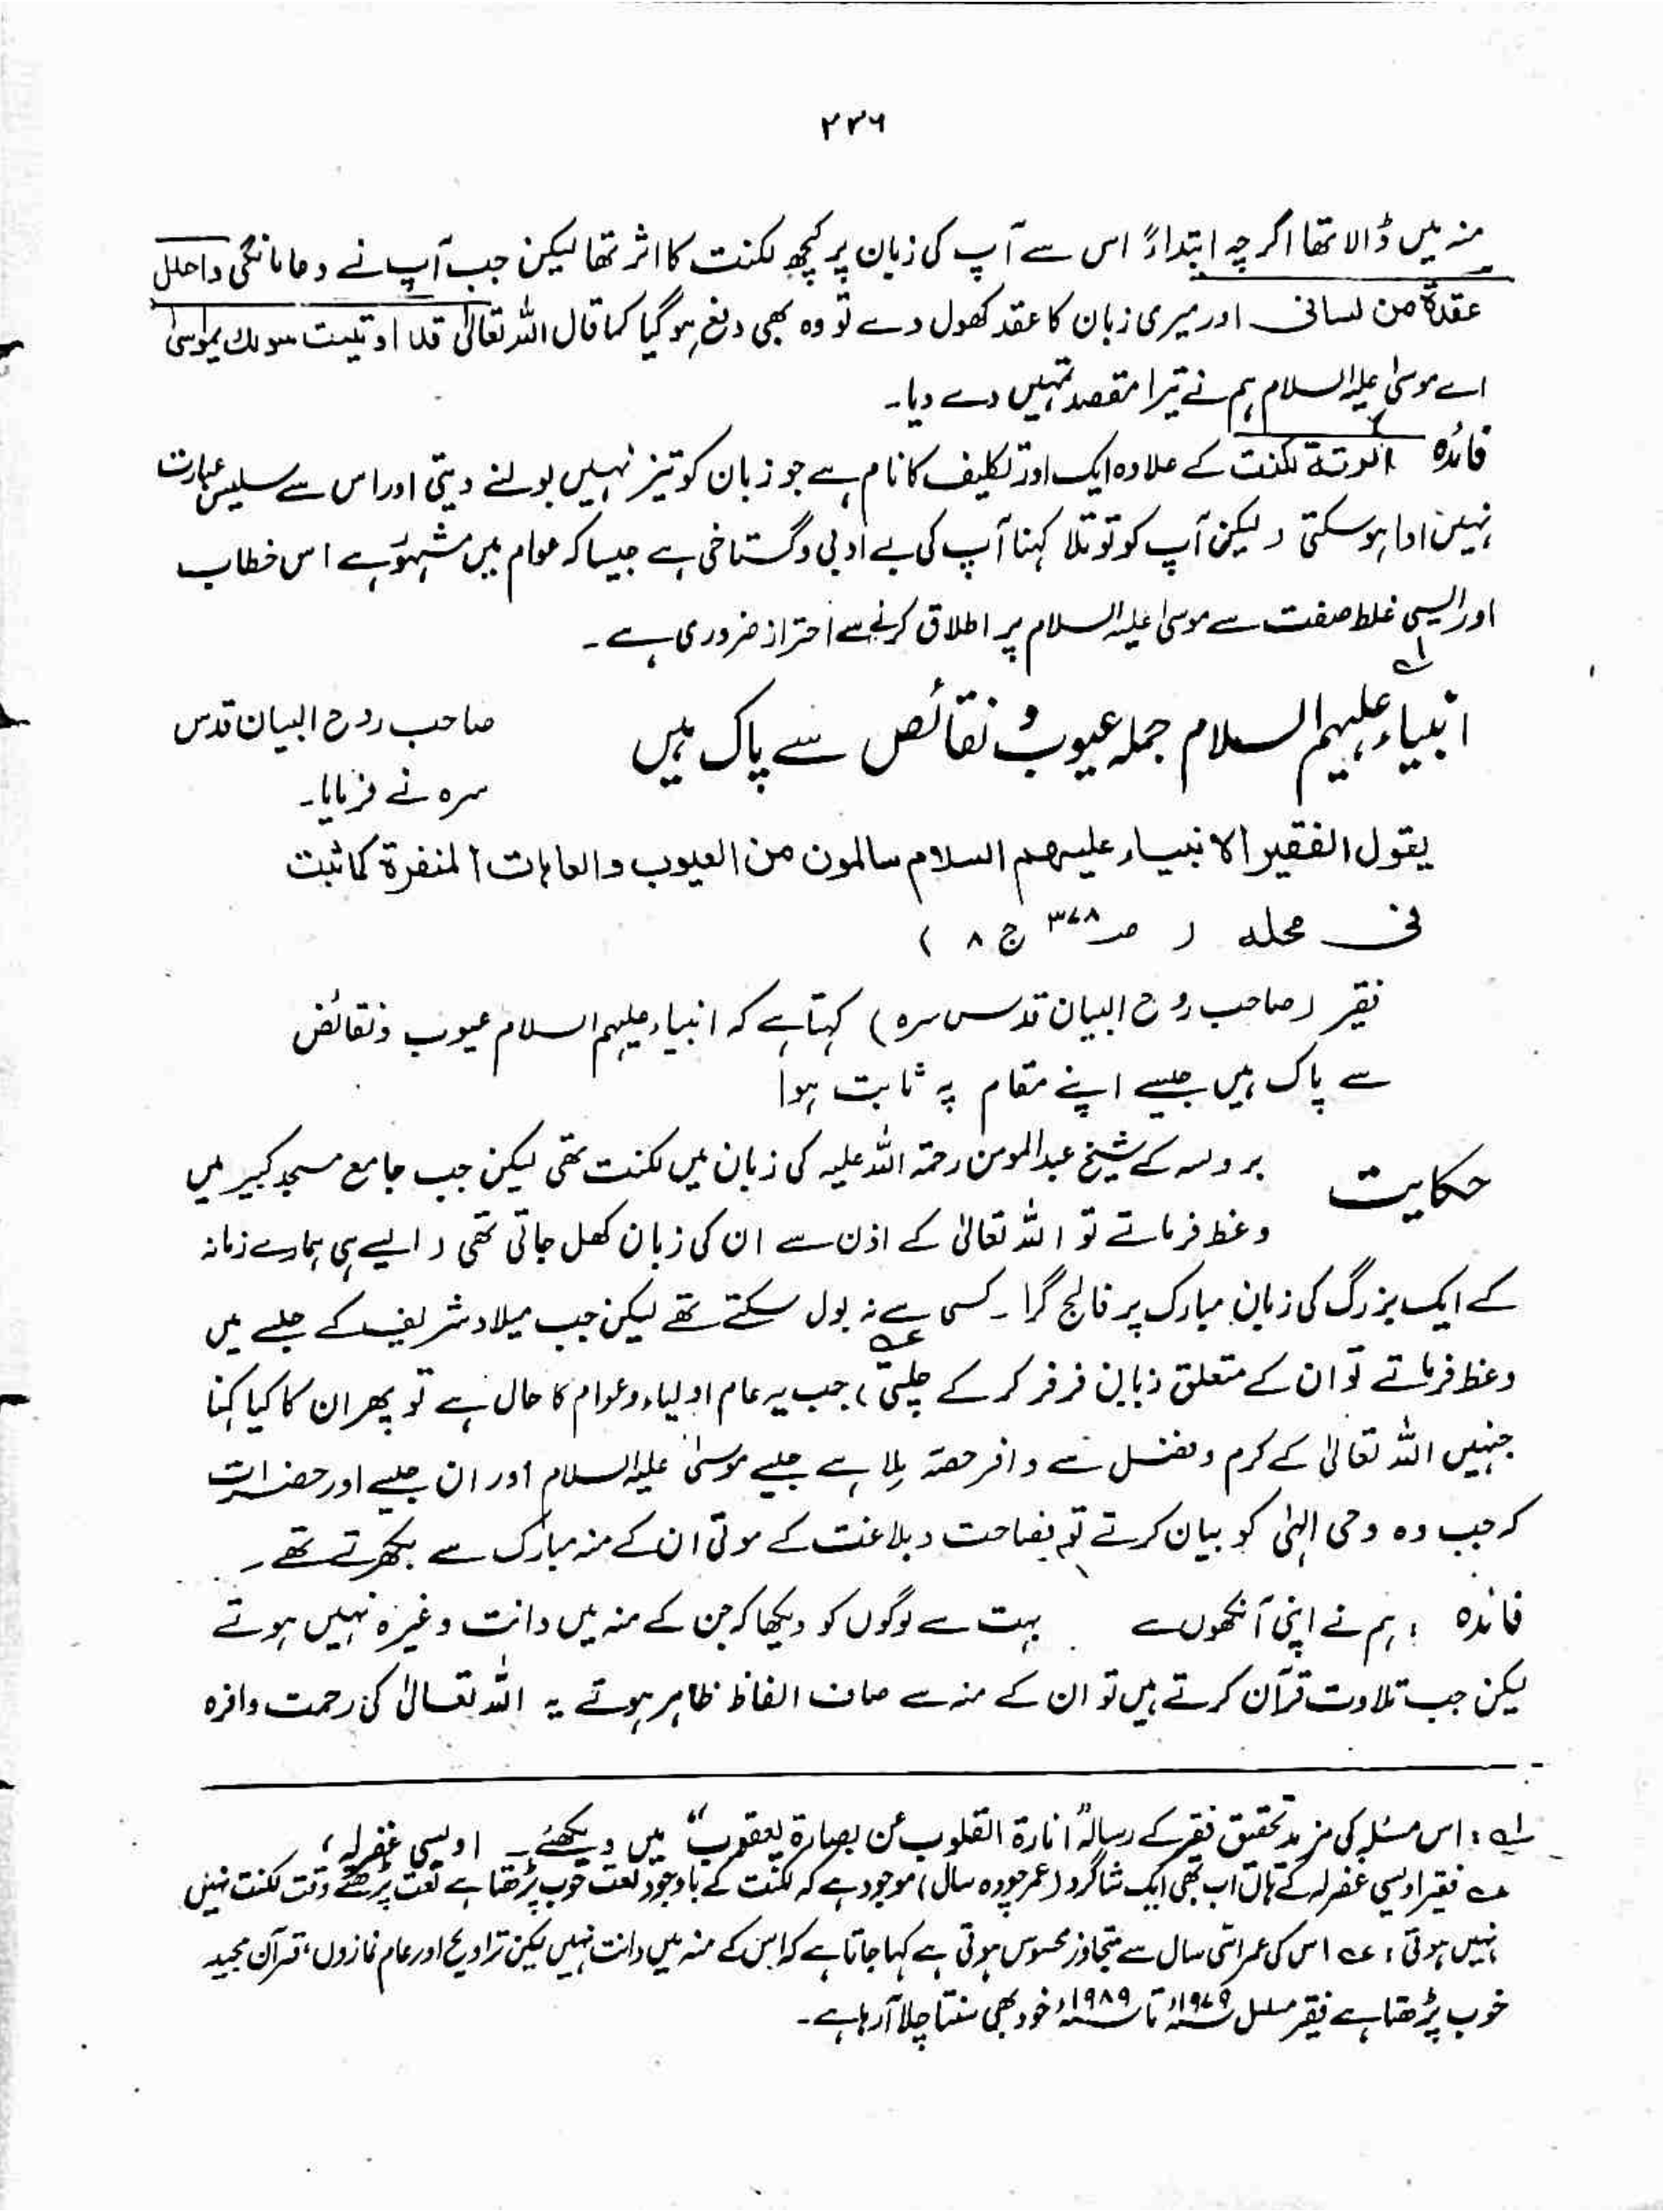 ۲۳۶
منہ میں ڈالا تھا اگرچہ ابتداءً اس سے آپ کی زبان پر کچھ لکنت کا اثر تھا لیکن جب آپ نے دعا مانگی واحلل
عقدة من لسانی اور میری زبان کا عقد کھول دے تو وہ بھی دفع ہو گیا کما قال اللہ تعالیٰ قد اوتیت سولك یموسیٰ
اے موسیٰ علیہ السلام ہم نے تیرا مقصد تمہیں دے دیا۔
فائدہ الوتة لکنت کے علاوہ ایک اور تکلیف کا نام ہے جو زبان کو تیز نہیں بولنے دیتی اور اس سے سلیس عبارت
نہیں ادا ہو سکتی ( لیکن آپ کو توتلا کہنا آپ کی بے ادبی و گستاخی ہے جیسا کہ عوام میں مشہور ہے اس خطاب
اور ایسی غلط صفت سے موسیٰ علیہ السلام پر اطلاق کرنے سے احتراز ضروری ہے ۔
انبیاء علیہم السلام جملہ عیوب و نقائص سے پاک ہیں ۱؎ صاحب روح البیان قدس
سرہ نے فرمایا۔
یقول الفقیر الانبیاء علیھم السلام سالمون من العیوب والعاہات المنفرة کما ثبت
فی محله ( صـ ۳۷۸ ج ۸ )
فقیر (صاحب روح البیان قدس سرہ) کہتا ہے کہ انبیاء علیہم السلام عیوب و نقائض
سے پاک ہیں جیسے اپنے مقام پہ ثابت ہوا
حکایت بروسہ کے شیخ عبدالمومن رحمۃ اللہ علیہ کی زبان میں لکنت تھی لیکن جب جامع مسجد کبیر میں
وعظ فرماتے تو اللہ تعالیٰ کے اذن سے ان کی زبان کھل جاتی تھی ( ایسے ہی ہمارے زمانہ
کے ایک بزرگ کی زبان مبارک پر فالج گرا ۔ کسی سے نہ بول سکتے تھے لیکن جب میلاد شریف کے جلسے میں
وعظ فرماتے تو ان کے متعلق زبان فرفر کر کے چلتی ) جب یہ عام اولیاء و عوام کا حال ہے تو پھر ان کا کیا کہنا
جنہیں اللہ تعالیٰ کے کرم و فضل سے وافر حصّہ ملا ہے جیسے موسیٰ علیہ السلام اور ان جیسے اور حضرات
کہ جب وہ وحی الہٰی کو بیان کرتے تو فصاحت و بلاغت کے موتی ان کے منہ مبارک سے بکھرتے تھے ۔
فائدہ : ہم نے اپنی آنکھوں سے بہت سے لوگوں کو دیکھا کہ جن کے منہ میں دانت وغیرہ نہیں ہوتے
لیکن جب تلاوت قرآن کرتے ہیں تو ان کے منہ سے صاف الفاظ ظاہر ہوتے یہ اللہ تعالیٰ کی رحمت وافرہ
۱؎ : اس مسئلہ کی مزید تحقیق فقیر کے رسالہ "انارة القلوب عن بصارة یعقوب" میں دیکھئے ۔ اویسی غفرلہ ،
عہ فقیر اویسی غفرلہ کے ہاں اب بھی ایک شاگرد (عمر چودہ سال) موجود ہے کہ لکنت کے باوجود نعت خوب پڑھتا ہے نعت پڑھتے وقت لکنت نہیں
نہیں ہوتی ، عہ اس کی عمر اسّی سال سے متجاوز محسوس ہوتی ہے کہا جاتا ہے کہ اس کے منہ میں دانت نہیں لیکن تراویح اور عام نمازوں ، قرآن مجید
خوب پڑھتا ہے فقیر مسلسل ۱۹۷۹ء تا ۱۹۸۹ء خود بھی سنتا چلا آرہا ہے ۔